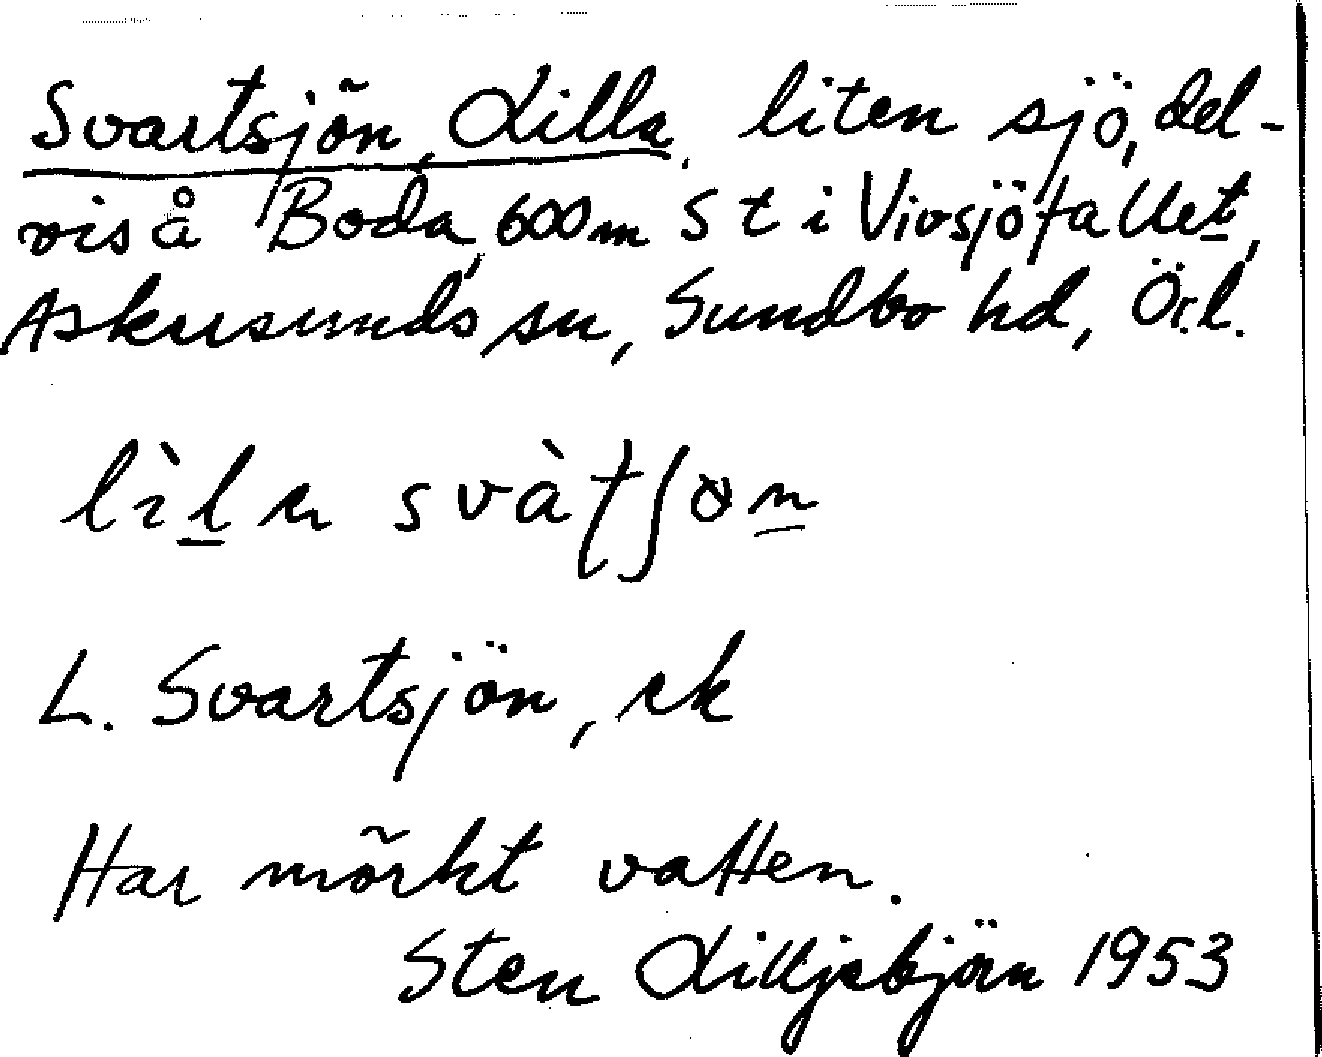 Svartsjön, Lilla, liten sjö, del-
vis å Boda, 600 m S t i Vivsjöfallet,
Askersunds sn, Sundbo hd, Ör.l.
lìla svàtʃøn
L. Svartsjön, ek
Har mörkt vatten.
Sten Lilljebjörn 1953